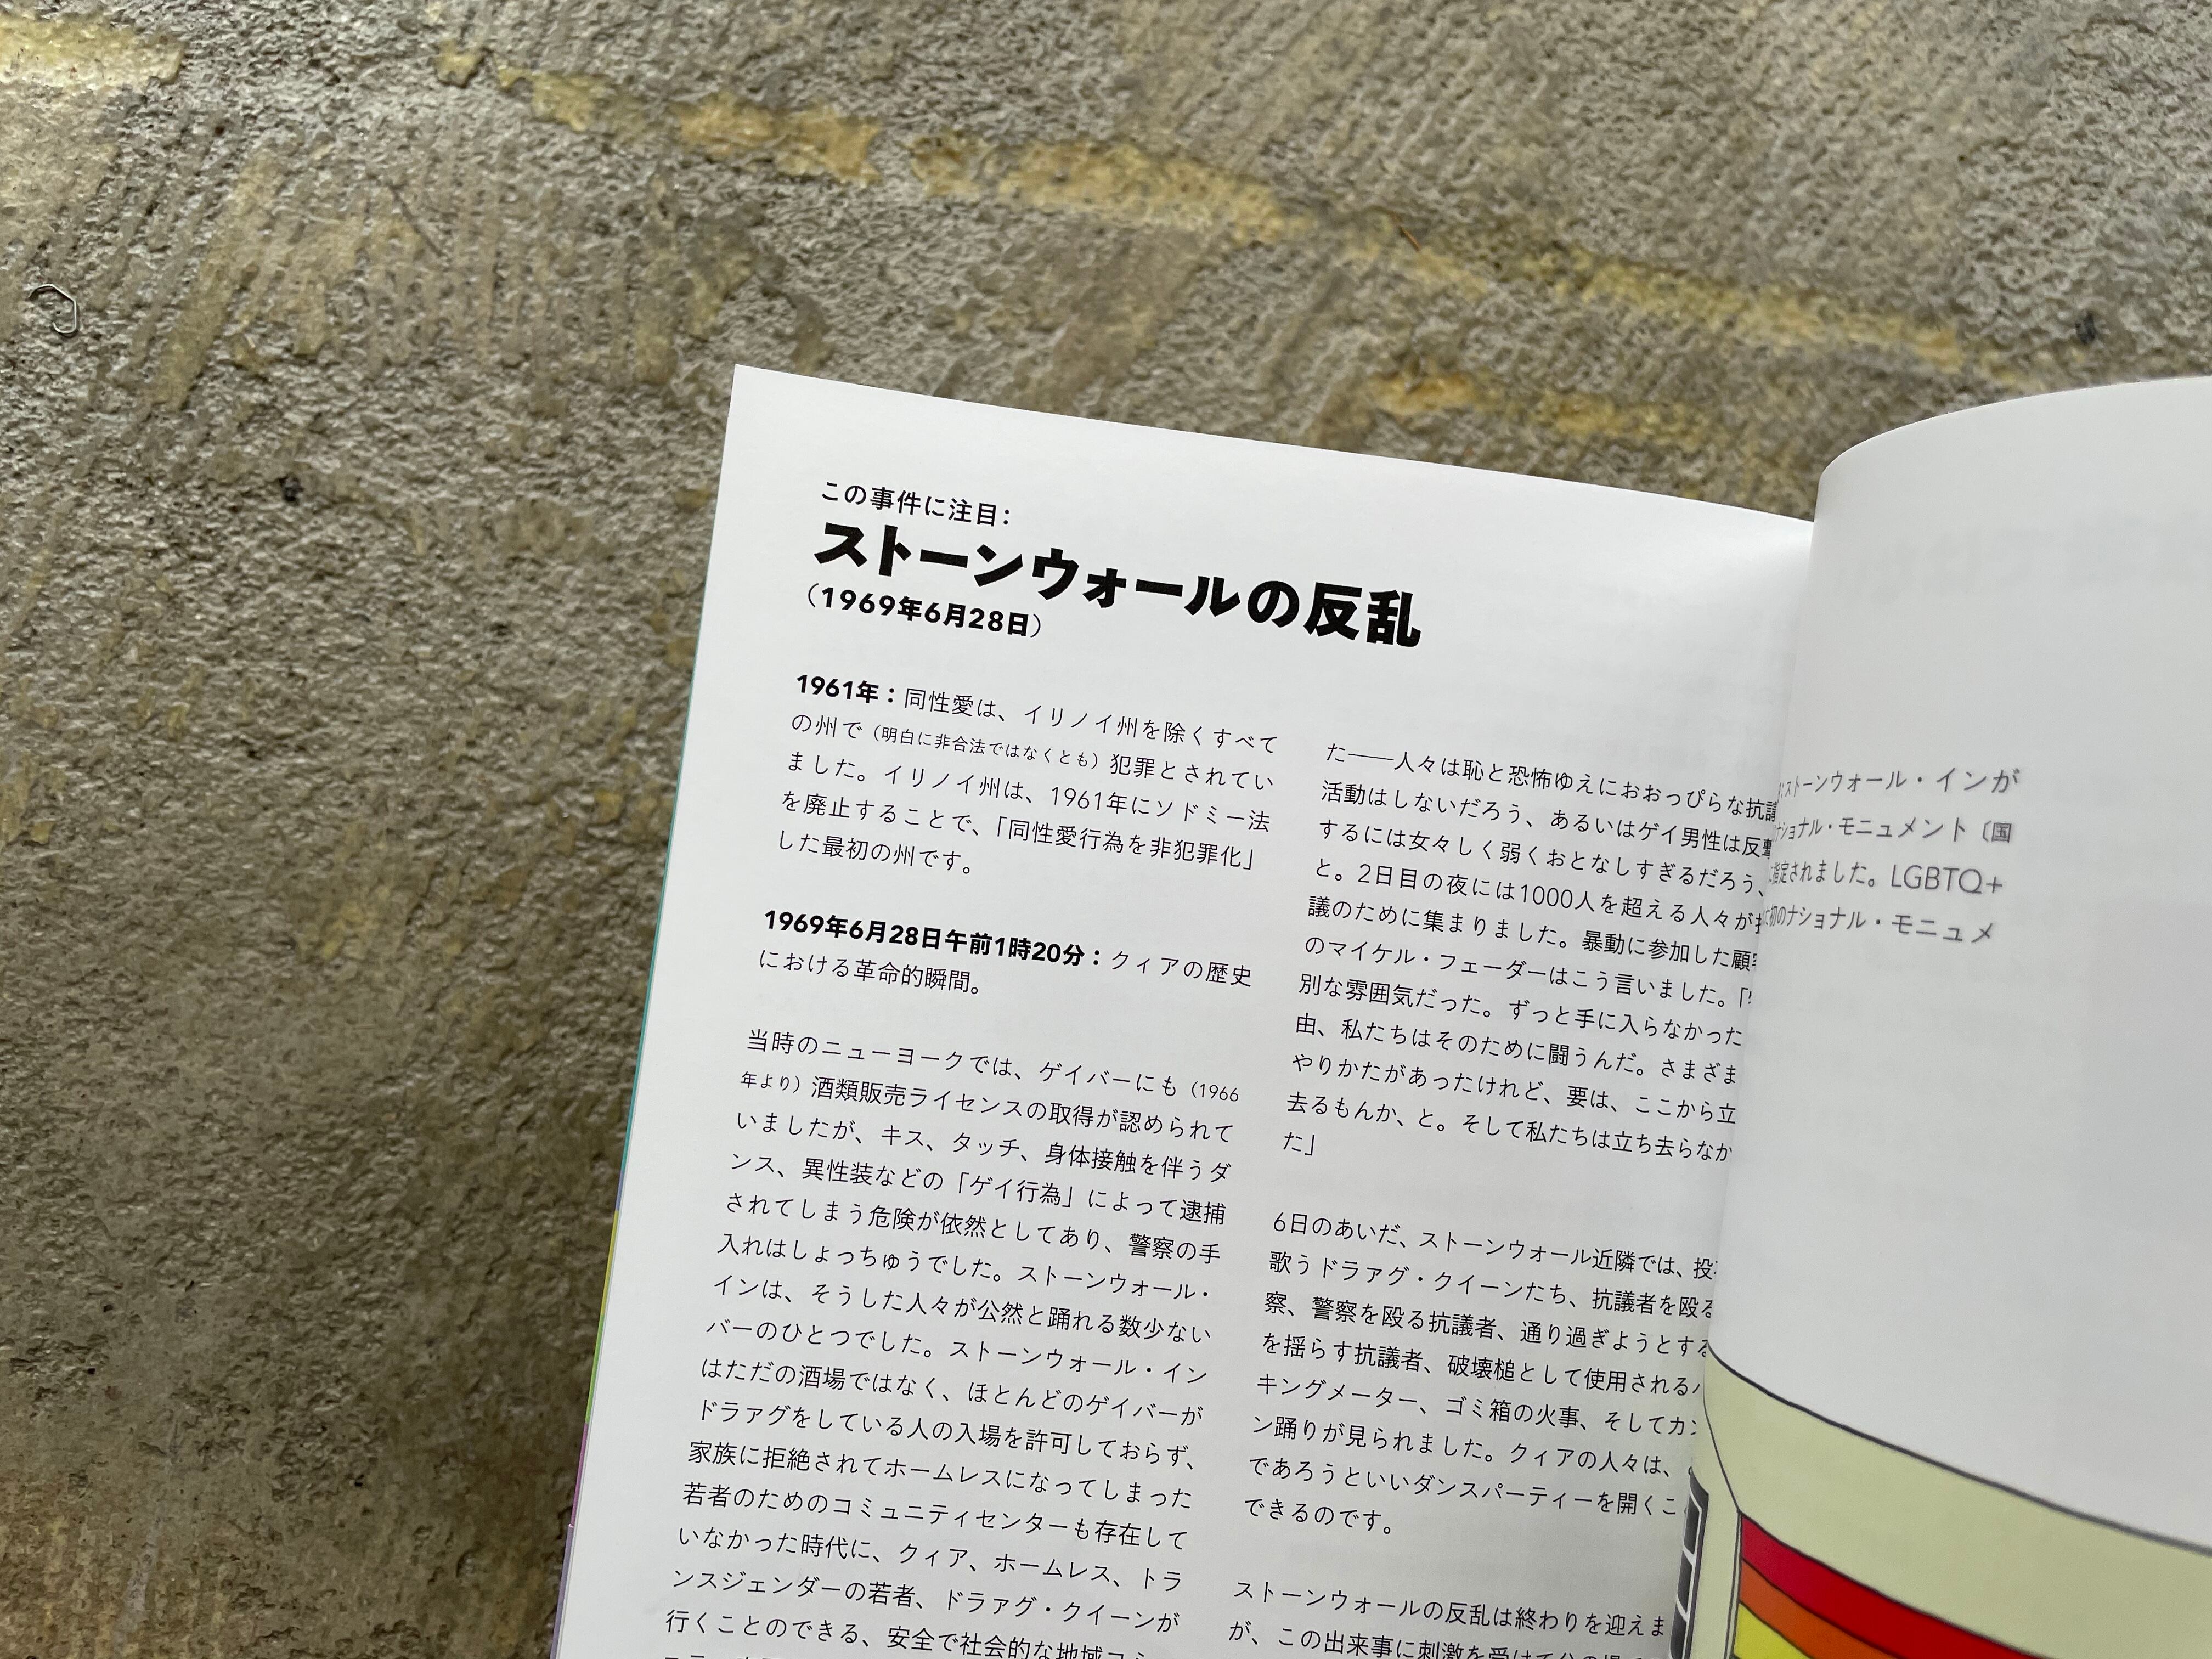 この事件に注目：
ストーンウォールの反乱
（1969年6月28日）
1961年：同性愛は、イリノイ州を除くすべて
の州で（明白に非合法ではなくとも）犯罪とされてい
ました。イリノイ州は、1961年にソドミー法
を廃止することで、「同性愛行為を非犯罪化」
した最初の州です。
1969年6月28日午前1時20分：クィアの歴史
における革命的瞬間。
当時のニューヨークでは、ゲイバーにも（1966
年より）酒類販売ライセンスの取得が認められて
いましたが、キス、タッチ、身体接触を伴うダ
ンス、異性装などの「ゲイ行為」によって逮捕
されてしまう危険が依然としてあり、警察の手
入れはしょっちゅうでした。ストーンウォール・
インは、そうした人々が公然と踊れる数少ない
バーのひとつでした。ストーンウォール・イン
はただの酒場ではなく、ほとんどのゲイバーが
ドラァグをしている人の入場を許可しておらず、
家族に拒絶されてホームレスになってしまった
若者のためのコミュニティセンターも存在して
いなかった時代に、クィア、ホームレス、トラ
ンスジェンダーの若者、ドラァグ・クイーンが
行くことのできる、安全で社会的な地域コミ
た──人々は恥と恐怖ゆえにおおっぴらな抗議
活動はしないだろう、あるいはゲイ男性は反撃
するには女々しく弱くおとなしすぎるだろう、
と。2日目の夜には1000人を超える人々が
議のために集まりました。暴動に参加した顧客
のマイケル・フェーダーはこう言いました。「
別な雰囲気だった。ずっと手に入らなかった
由、私たちはそのために闘うんだ。さまざま
やりかたがあったけれど、要は、ここから立
去るもんか、と。そして私たちは立ち去らなか
た」
6日のあいだ、ストーンウォール近隣では、投
歌うドラァグ・クイーンたち、抗議者を殴る
察、警察を殴る抗議者、通り過ぎようとする
を揺らす抗議者、破壊槌として使用される
キングメーター、ゴミ箱の火事、そしてカン
ン踊りが見られました。クィアの人々は、
であろうといいダンスパーティーを開くこ
できるのです。
ストーンウォールの反乱は終わりを迎えま
が、この出来事に刺激を受けて
ストーンウォール・インが
ナショナル・モニュメント〔国
指定されました。LGBTQ+
初のナショナル・モニュメ